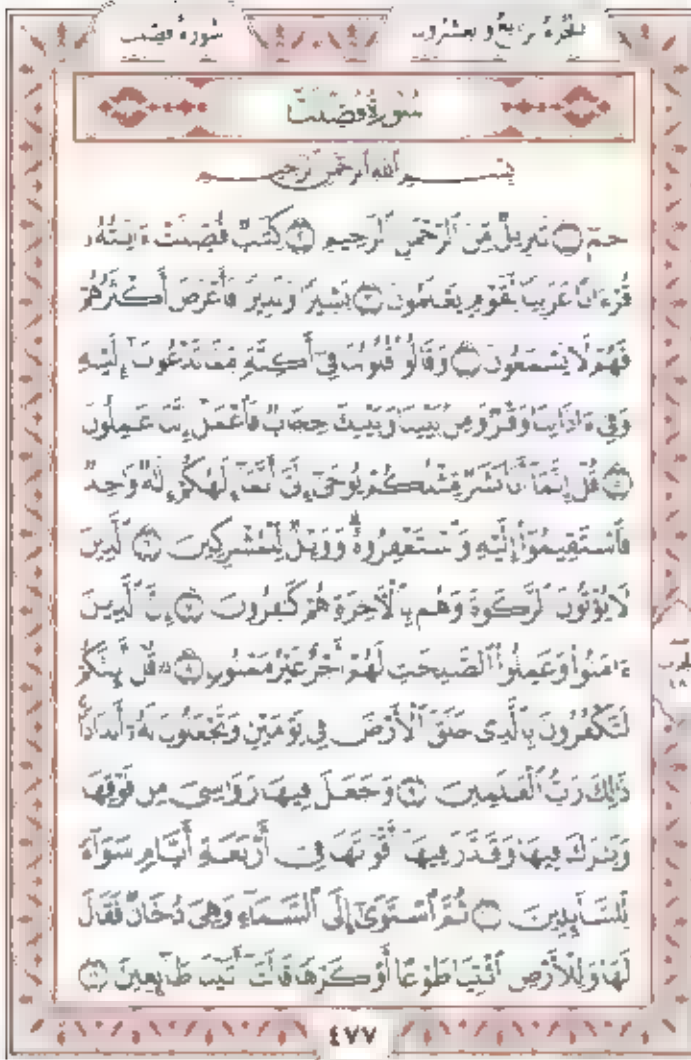 سُورَةُ فُصِّلَتْ الجُزْءُ الرَّابِعُ وَالعِشْرُونَ
سُورَةُ فُصِّلَتْ
بِسْمِ ٱللَّهِ ٱلرَّحْمَٰنِ ٱلرَّحِيمِ
حمٓ ١ تَنزِيلٌ مِّنَ ٱلرَّحْمَٰنِ ٱلرَّحِيمِ ٢ كِتَٰبٌ فُصِّلَتْ ءَايَٰتُهُۥ
قُرْءَانًا عَرَبِيًّا لِّقَوْمٍ يَعْلَمُونَ ٣ بَشِيرًا وَنَذِيرًا فَأَعْرَضَ أَكْثَرُهُمْ
فَهُمْ لَا يَسْمَعُونَ ٤ وَقَالُوا۟ قُلُوبُنَا فِىٓ أَكِنَّةٍ مِّمَّا تَدْعُونَآ إِلَيْهِ
وَفِىٓ ءَاذَانِنَا وَقْرٌ وَمِنۢ بَيْنِنَا وَبَيْنِكَ حِجَابٌ فَٱعْمَلْ إِنَّنَا عَٰمِلُونَ
٥ قُلْ إِنَّمَآ أَنَا۠ بَشَرٌ مِّثْلُكُمْ يُوحَىٰٓ إِلَىَّ أَنَّمَآ إِلَٰهُكُمْ إِلَٰهٌ وَٰحِدٌ
فَٱسْتَقِيمُوٓا۟ إِلَيْهِ وَٱسْتَغْفِرُوهُ ۗ وَوَيْلٌ لِّلْمُشْرِكِينَ ٦ ٱلَّذِينَ
لَا يُؤْتُونَ ٱلزَّكَوٰةَ وَهُم بِٱلْءَاخِرَةِ هُمْ كَٰفِرُونَ ٧ إِنَّ ٱلَّذِينَ
ءَامَنُوا۟ وَعَمِلُوا۟ ٱلصَّٰلِحَٰتِ لَهُمْ أَجْرٌ غَيْرُ مَمْنُونٍ ٨ ۞ قُلْ أَئِنَّكُمْ
لَتَكْفُرُونَ بِٱلَّذِى خَلَقَ ٱلْأَرْضَ فِى يَوْمَيْنِ وَتَجْعَلُونَ لَهُۥٓ أَندَادًا ۚ
ذَٰلِكَ رَبُّ ٱلْعَٰلَمِينَ ٩ وَجَعَلَ فِيهَا رَوَٰسِىَ مِن فَوْقِهَا
وَبَٰرَكَ فِيهَا وَقَدَّرَ فِيهَآ أَقْوَٰتَهَا فِىٓ أَرْبَعَةِ أَيَّامٍ سَوَآءً
لِّلسَّآئِلِينَ ١٠ ثُمَّ ٱسْتَوَىٰٓ إِلَى ٱلسَّمَآءِ وَهِىَ دُخَانٌ فَقَالَ
لَهَا وَلِلْأَرْضِ ٱئْتِيَا طَوْعًا أَوْ كَرْهًا قَالَتَآ أَتَيْنَا طَآئِعِينَ ١١
٤٧٧